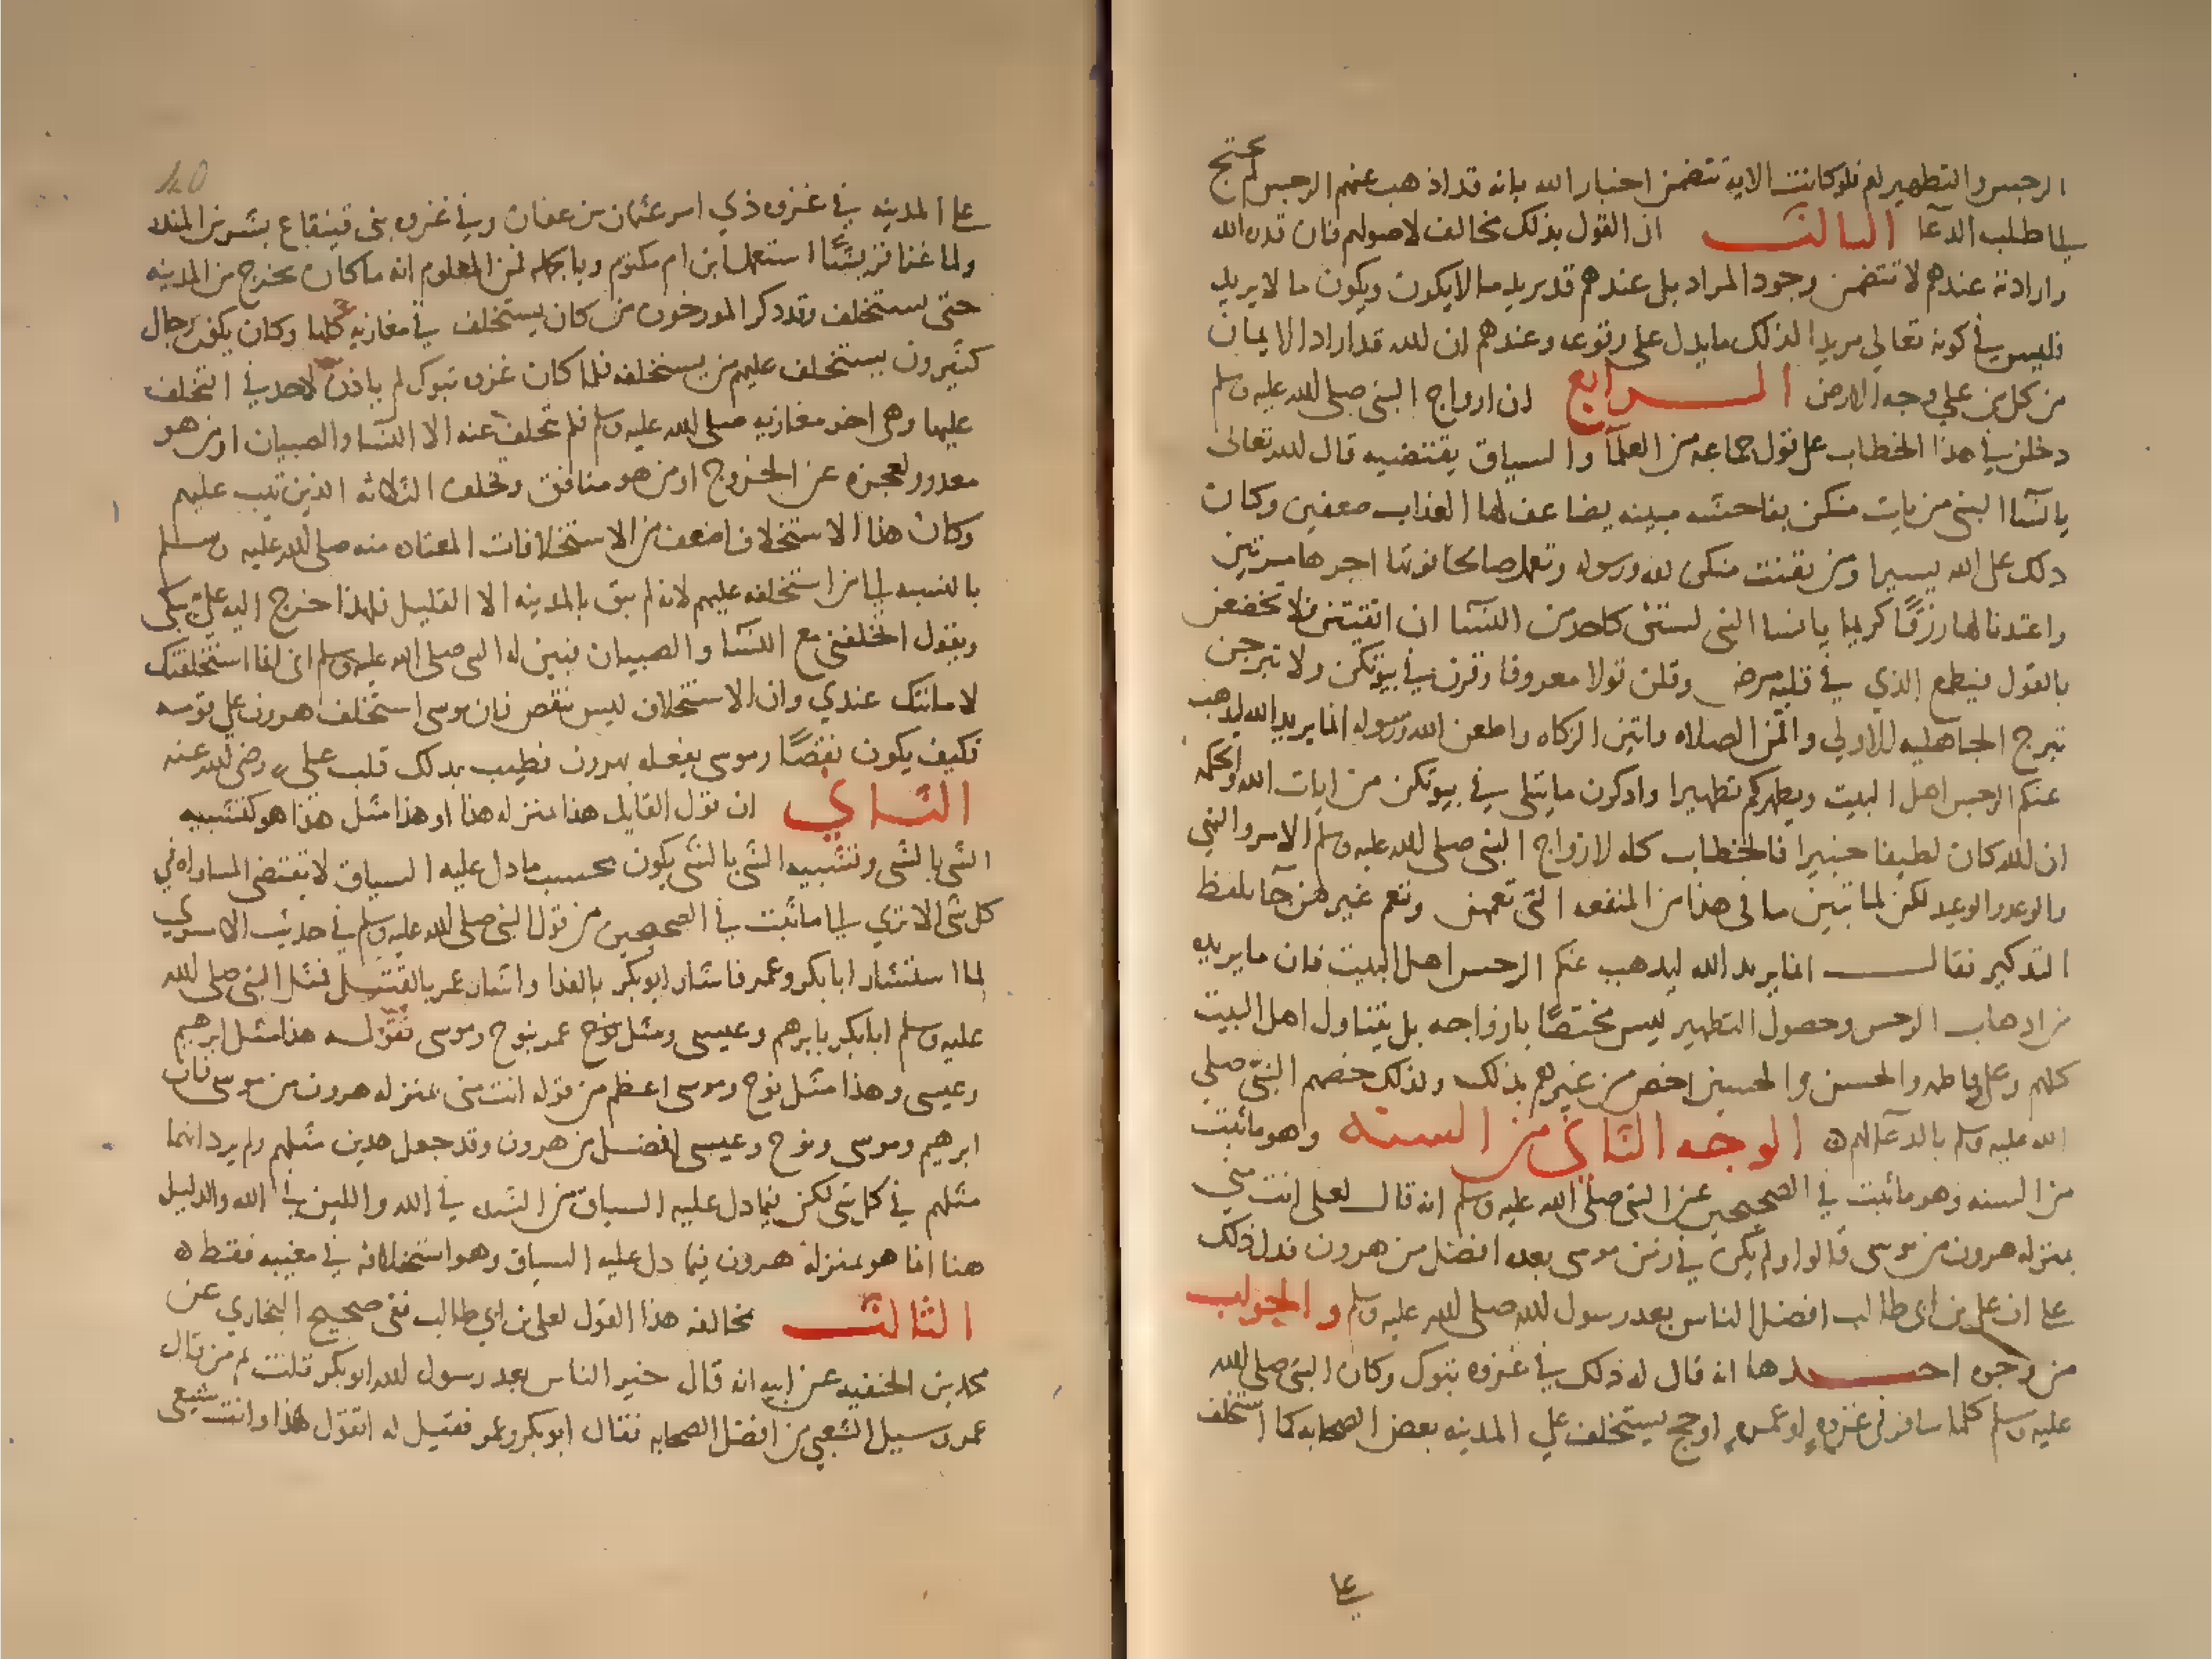 الرجس والتطهير لهم فلو كانت الايه تتضمن اخبار الله بانه قد اذهب عنهم الرجس لم يحتج
الى طلب الدعا الثالث ان القول بذلك مخالف لاصولهم فان قدره الله
وارادته عندهم لا تتضمن وجود المراد بل عندهم قد يريد ما لا يكون ويكون ما لا يريد
فليس في كونه تعالى مريدا لذلك ما يدل على وقوعه وعندهم ان لله قد اراد الايمان
من كل من على وجه الارض الرابع ان ازواج النبي صلى الله عليه وسلم
دخلن في هذا الخطاب على قول جماعه من العلما والسياق يقتضيه قال لله تعالى
يا نسا النبي من يات منكن بفاحشه مبينه يضاعف لها العذاب ضعفين وكان
ذلك على الله يسيرا ومن يقنت منكن لله ورسوله وتعمل صالحا نوتها اجرها مرتين
واعتدنا لها رزقا كريما يا نسا النبي لستن كاحد من النسا ان اتقيتن فلا تخضعن
بالقول فيطمع الذي في قلبه مرض وقلن قولا معروفا وقرن في بيوتكن ولا تبرجن
تبرج الجاهليه الاولي واقمن الصلاه واتين الزكاه واطعن الله ورسوله انما يريد الله ليذهب
عنكم الرجس اهل البيت ويطهركم تطهيرا واذكرن ما يتلى في بيوتكن من ايات الله والحكمه
ان لله كان لطيفا خبيرا فالخطاب كله لازواج النبي صلى لله عليه وسلم الامر والنهي
والوعد والوعيد لكن لما تبين ما في هذا من المنفعه التي تعمهن وتعم غيرهن جا بلفظ
التذكير فقال انما يريد الله ليذهب عنكم الرجس اهل البيت فان ما يريده
من اذهاب الرجس وحصول التطهير ليس مختصا بازواجه بل يتناول اهل البيت
كلهم وعلي وفاطمه والحسن والحسين اخص من غيرهم بذلك ولذلك خصهم النبي صلى
الله عليه وسلم بالدعا لهم الوجه الثاني من السنه وهو ما ثبت
من السنه وهو ما ثبت في الصحيحين عن النبي صلى الله عليه وسلم انه قال لعلى انت مني
بمنزله هرون من موسى قالوا ولم يكن في زمن موسى بعده افضل من هرون فدل ذلك
على ان علي بن ابي طالب افضل الناس بعد رسول لله صلى لله عليه وسلم والجواب
من وجوه احدها انه قال له ذلك في غزوه تبوك وكان النبي صلى لله
عليه وسلم كلما سافر في غزوه او عمره او حج يستخلف على المدينه بعض الصحابه كما استخلف
على
على المدينه في غزوه ذي امر عثمان بن عفان وفي غزوه بني قينقاع بشر بن المنذر
ولما غزا قريشا استعمل ابن ام مكتوم وبالجمله فمن المعلوم انه ما كان يخرج من المدينه
حتى يستخلف وقد ذكر المورخون من كان يستخلف في مغازيه كلها وكان يكون رجال
كثيرون يستخلف عليهم من يستخلفه فلما كان غزوه تبوك لم ياذن لاحد في التخلف
عليها وهى اخر مغازيه صلى لله عليه وسلم فلم تخلف عنه الا النسا والصبيان او من هو
معذور لعجزه عن الخروج او من هو منافق وتخلف الثلاثه الذين تيب عليهم
وكان هذا الاستخلاف اضعف من الاستخلافات المعتاده منه صلى لله عليه وسلم
بالنسبه الى من استخلفه عليهم لانه لم يبق بالمدينه الا القليل فلهذا خرج اليه علي يبكي
ويقول اتخلفني مع النسا والصبيان فبين له النبي صلى الله عليه وسلم اني انما استخلفتك
لامانتك عندي وان الاستخلاف ليس نقص فان موسى استخلف هرون على قومه
فكيف يكون نقصا وموسى يفعله بهرون فطيب بذلك قلب علي رضى لله عنه
الثاني ان قول القايل هذا بمنزله هذا او هذا مثل هذا هو كتشبيه
الشي بالشي وتشبيه الشي بالشي يكون بحسب ما دل عليه السياق لا يقتضى المساواه في
كل شي الا تري الى ما ثبت في الصحيحين من قول النبي صلى لله عليه وسلم في حديث الاسري
لما استشار ابا بكر وعمر فاشار ابو بكر بالفدا واشار عمر بالقتل فمثل النبي صلى لله
عليه وسلم ابا بكر بابرهيم وعيسى ومثل نوح عمر بنوح وموسى فقوله هذا مثل ابرهيم
وعيسى وهذا مثل نوح وموسى اعظم من قوله انت منى بمنزله هرون من موسى فان
ابرهيم وموسى ونوح وعيسى افضل من هرون وقد جعل هدين مثلهم ولم يرد انهما
مثلهم في كل شي لكن فيما دل عليه السياق من الشده في الله واللين في الله والدليل
هنا انما هو بمنزله هرون فيما دل عليه السياق وهو استخلافه في مغيبه فقط
الثالث مخالفه هذا القول لعلي بن ابي طالب ففى صحيح البخاري عن
محمد بن الحنفيه عن ابيه انه قال خير الناس بعد رسول لله ابو بكر قلت ثم من قال
عمر وسيل الشعبي من افضل الصحابه فقال ابو بكر وعمر فقيل له اتقول هذا وانت شيعى